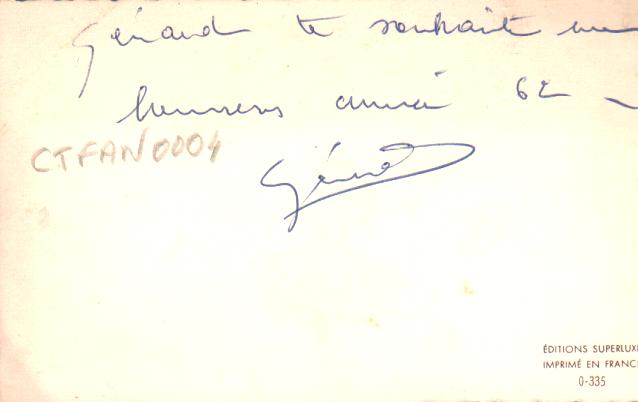 Gérard te souhaite une
heureuse année 62
CTFAN0004
Gérard
ÉDITIONS SUPERLUXE
IMPRIMÉ EN FRANCE
O-335